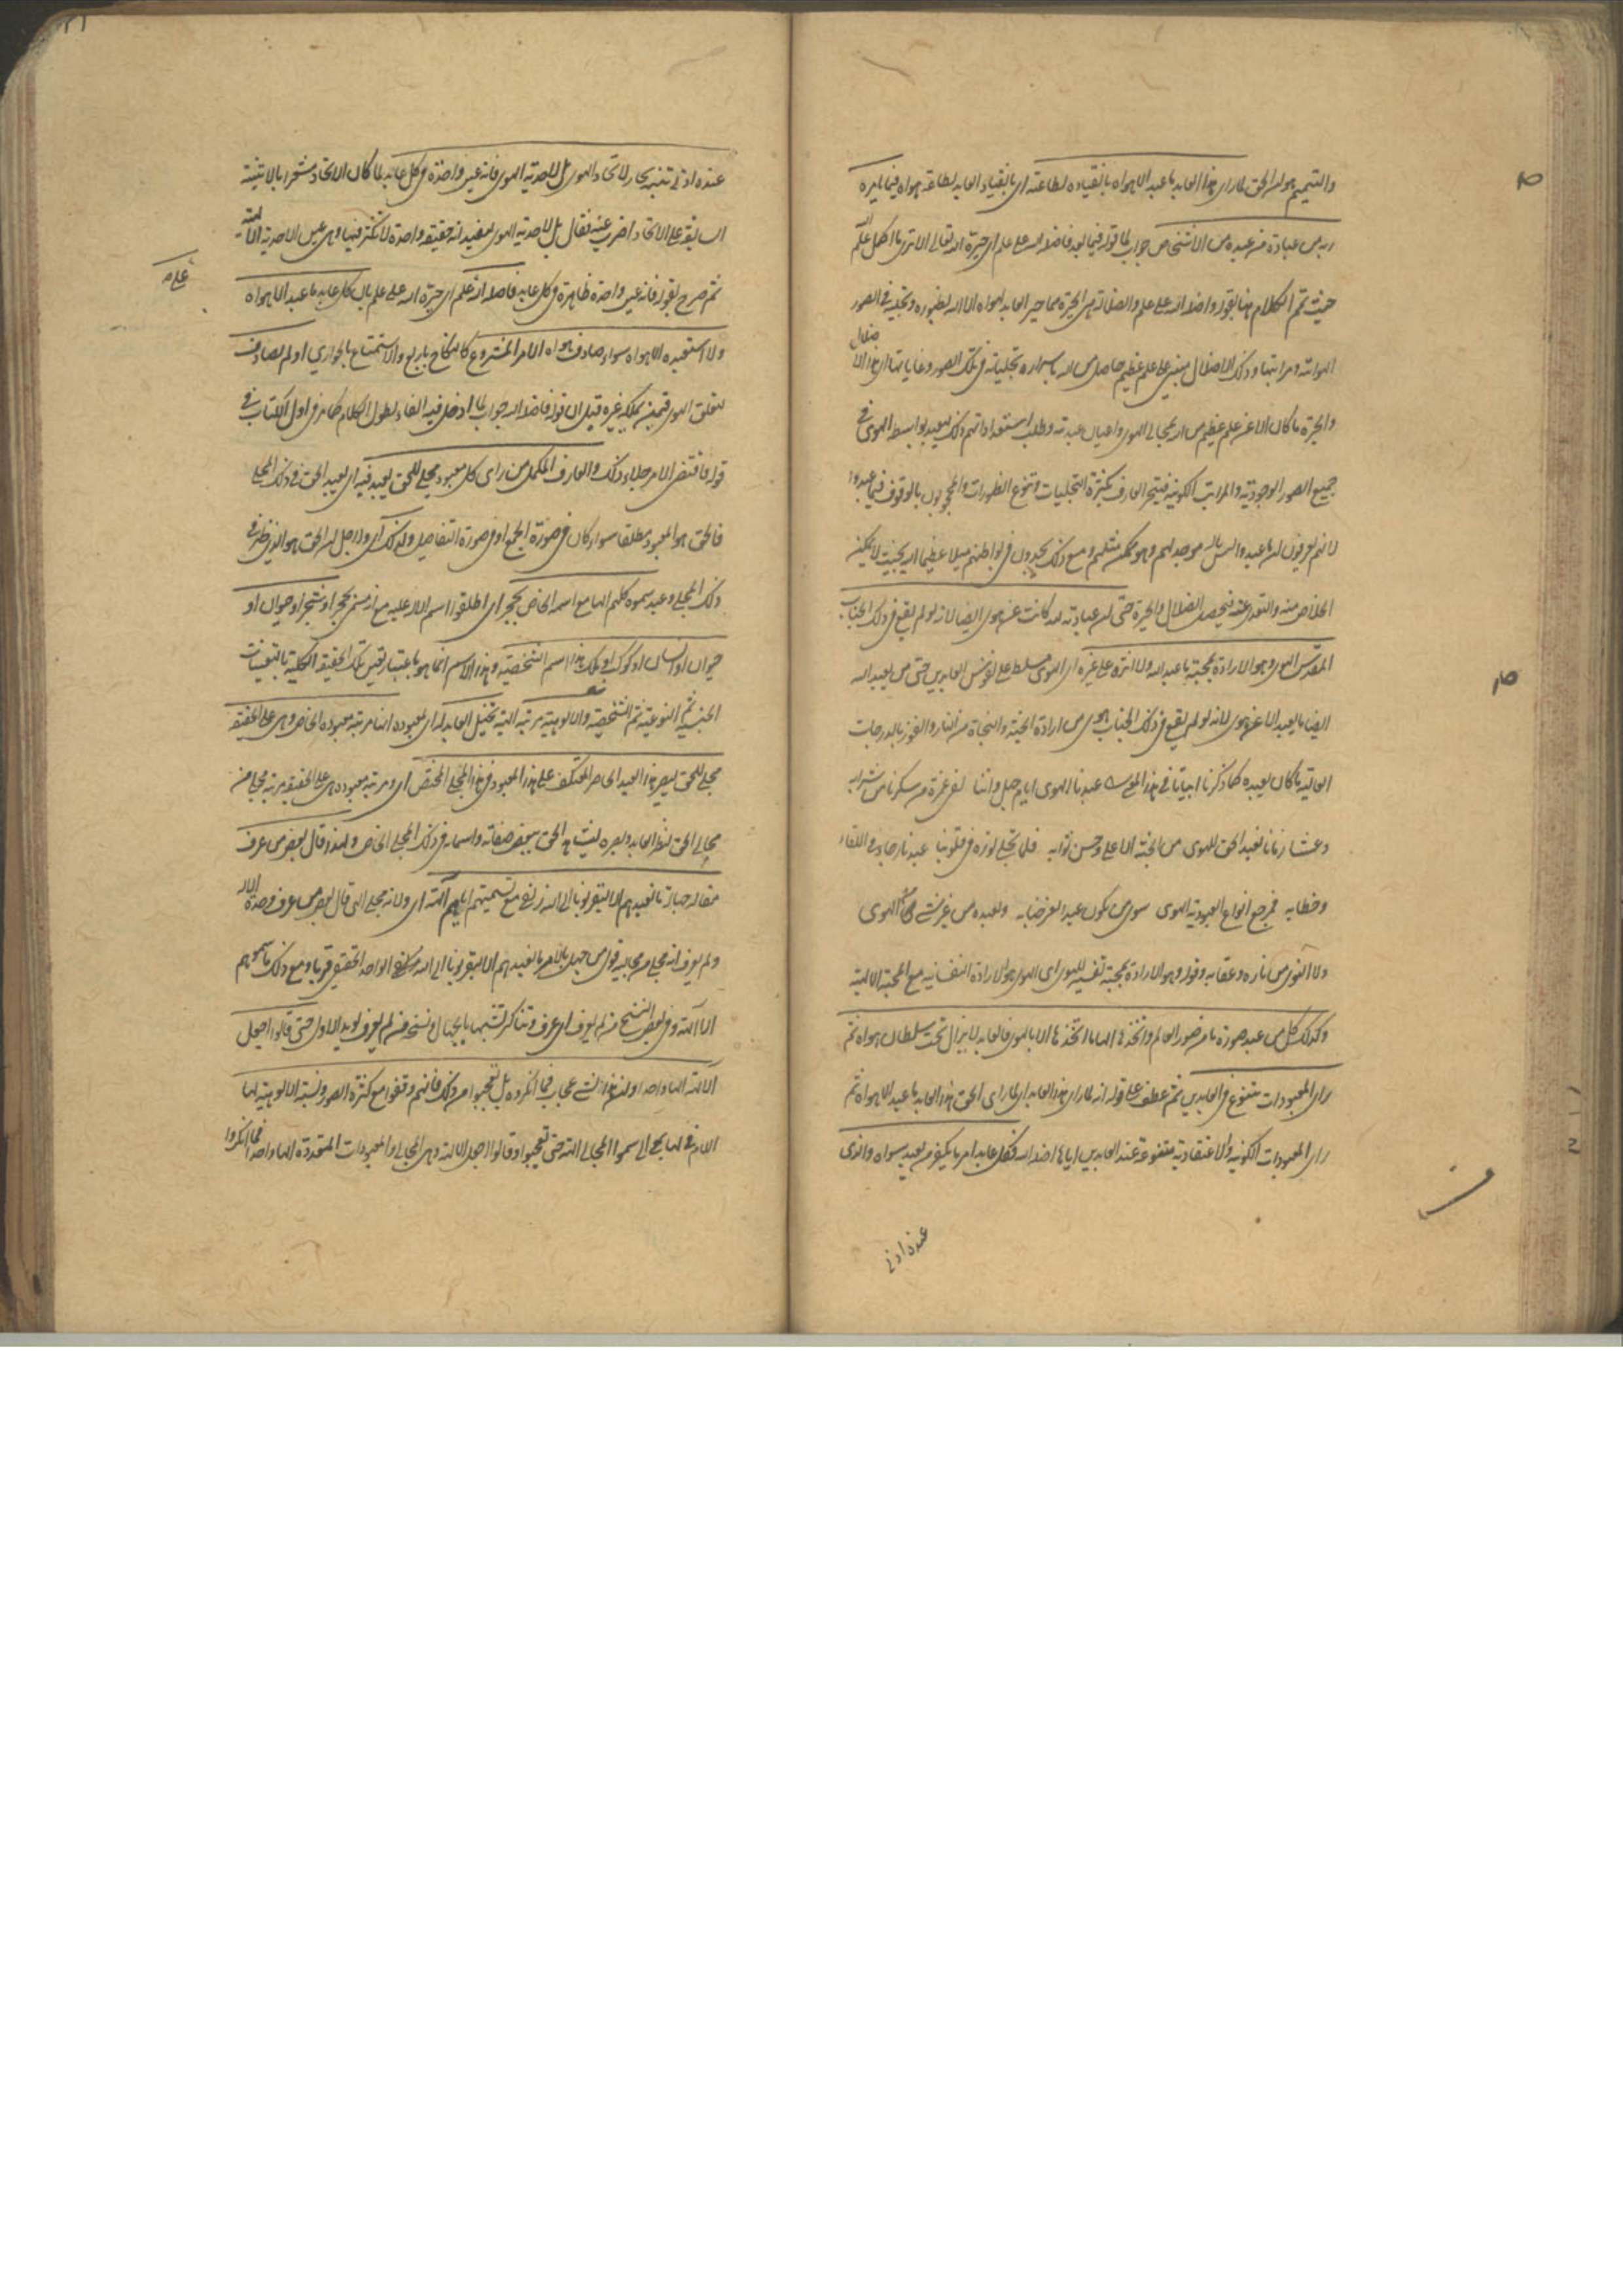 والتتميم هو ان الحق لما رأى هذا العابد ما عبد الا هواه بانقياده لطاعته اى بانقياد العابد لطاعة هواه فيما يأمره
به من عبادة من عبده من الاشخاص جواب لما قوله فيما بعد فاضله الله على علم اى حيره الله تعالى الا ترى ما اكمل علم الله
حيث تمم الكلام هنا بقوله واضله الله على علم والضلالة هى الحيرة فما حير العابد لهواه الا الله لظهوره وتجليه فى الصور
الهوائية ومراتبها وذلك الاضلال مبنى على علم عظيم حاصل من الله باسراره تجلياته فى تلك الصور وغاياتها اى هذا الاضلال
والحيرة ما كان الا عن علم عظيم من الله بمجالى الهوى واعيان عبدته وطلب استعداداتهم ذلك ليعبد بواسطة الهوى فى
جميع الصور الوجودية والمراتب الكونية فيتحير العارف بكثرة التجليات وتنوع الظهورات والمحجوبون بالوقوف فيما عبدوا
لانهم يعرفون ان ما عبدوا ليس باله موجد لهم وهو ممكن مثلهم ومع ذلك يجدون فى بواطنهم ميلا عظيما اليه بحيث لا يمكن
الخلاص منه والتعدى عنه فيحصل الضلال والحيرة حتى ان عبادته لله كانت عن هوى ايضا لانه لو لم يقع فى ذلك الجناب
المقدس الهوى وهو الارادة بمحبة ما عبد الله ولا آثره على غيره اى الهوى مسلط على نفوس العابدين حتى من يعبد الله
ايضا ما يعبد الا عن هوى لانه لو لم يقع فى ذلك الجناب هوى من ارادة الجنة والنجاة من النار والفوز بالدرجات
العالية ما كان يعبده كما ذكرنا ابياتا فى هذا المعنى عبدنا الهوى ايام جهل واننا لفى غمرة من سكرنا من شرابه
وعشنا زمانا نعبد الحق للهوى من الجنة الاعلى وحسن ثوابه فلما تجلى نوره فى قلوبنا عبدنا رجاء فى اللقاء
وخطابه فمرجع انواع العبودية الهوى سوى من يكون عبدا لعز جنابه ونعبده من غير شئ من الهوى
ولا للنوى من ناره وعقابه وقوله وهو الارادة بمحبة تفسير للهوى اى الهوى هو الارادة النفسانية مع المحبة الالهية
وكذلك كل من عبد صورة ما من صور العالم واتخذها الها ما اتخذها الا بالهوى فالعابد لا يزال تحت سلطان هواه ثم
رأى المعبودات تتنوع فى العابدين ثم عطف على قوله انه لما رأى هذا العابد اى لما رأى الحق هذا العابد ما عبد الا هواه ثم
رأى المعبودات الكونية والاعتقادية متنوعة عند العابدين اياها اضله الله فكل عابد امر ما يكفر من يعبد سواه والذى
عنده ادنى
عنده ادنى تنبه يحار لاتحاد الهوى بل لاحدية الهوى فانه عين واحدة فى كل عابد لما كان الاتحاد مشعرا بالاثنينية
السابقة على الاتحاد اضرب عنه فقال بل لاحدية الهوى ليفيد انه حقيقة واحدة لا تكثر فيها وهى عين الاحدية الالهية
ثم صرح بقوله فانه عين واحدة ظاهرة فى كل عابد فاضله الله على علم اى حيره الله على علم بان كل عابد ما عبد الا هواه
ولا استعبده الا هواه سواء صادف هواه الامر المشروع كالنكاح باربع والاستمتاع بالجوارى او لم يصادف
لتعلق الهوى فيمن يملكه غيره قيل ان قوله فاضله الله جواب لما ادخل فيه الفاء لطول الكلام كما مر فى اول الكتاب فى
قوله فاقتضى الامر جلاء ذلك والعارف المكمل من رأى كل معبود مجلى للحق يعبد فيه اى يعبد الحق فى ذلك المجلى
فالحق هو المعبود مطلقا سواء كان فى صورة الجمع او فى صورة التفاصيل ولذلك اى ولاجل ان الحق هو الذى ظهر فى
ذلك المجلى وعبد سموه كلهم الها مع اسمه الخاص بحجر اى اطلقوا اسم الاله عليه مع انه مسمى بحجر او شجر او حيوان او
حيوان او انسان او كوكب او ملك هذا اسم الشخصية وهذا الاسم انما هو باعتبار تعين تلك الحقيقة الكلية بالتعينات
الجنسية ثم النوعية ثم الشخصية والالوهية مرتبة الهية تخيل العابد له اى لمعبوده انها مرتبة معبوده الخاص وهى على الحقيقة
مجلى للحق لبصر هذا العبد الخاص المعتكف على هذا المعبود فى هذا المجلى المختص اى ومرتبة معبوده هى على الحقيقة مرتبة مجلى من
مجالى الحق لنظر العابد وبصره ليشاهد الحق ببعض صفاته واسمائه فى ذلك المجلى الخاص ولهذا قال بعض من عرف
مقاله جهالة ما نعبدهم الا ليقربونا الى الله زلفى مع تسميتهم اياهم آلهة اى ولانه مجلى الهى قال بعض من عرف وحدة الاله
ولم يعرف انه مجلى من مجاليه قول من جهل بالامر ما نعبدهم الا ليقربونا الى الله زلفى الواحد الحقيقى قربا ومع ذلك ما سموهم
الا آلهة وفى بعض النسخ من لم يعرف اى عرف وتناكر تشبها بالجهال ونسخة من لم يعرف يؤيد الاول حتى قالوا اجعل
الآلهة الها واحدا ان هذا لشئ عجاب فما انكروه بل تعجبوا من ذلك فانهم وقفوا مع كثرة الصور ونسبة الالوهية لها
حتى تعجبوا وقالوا اجعل الآلهة وهى المجالى والمعبودات المتعددة الها واحدا فما انكروا